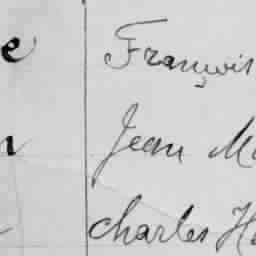 e François
Jean
Charles